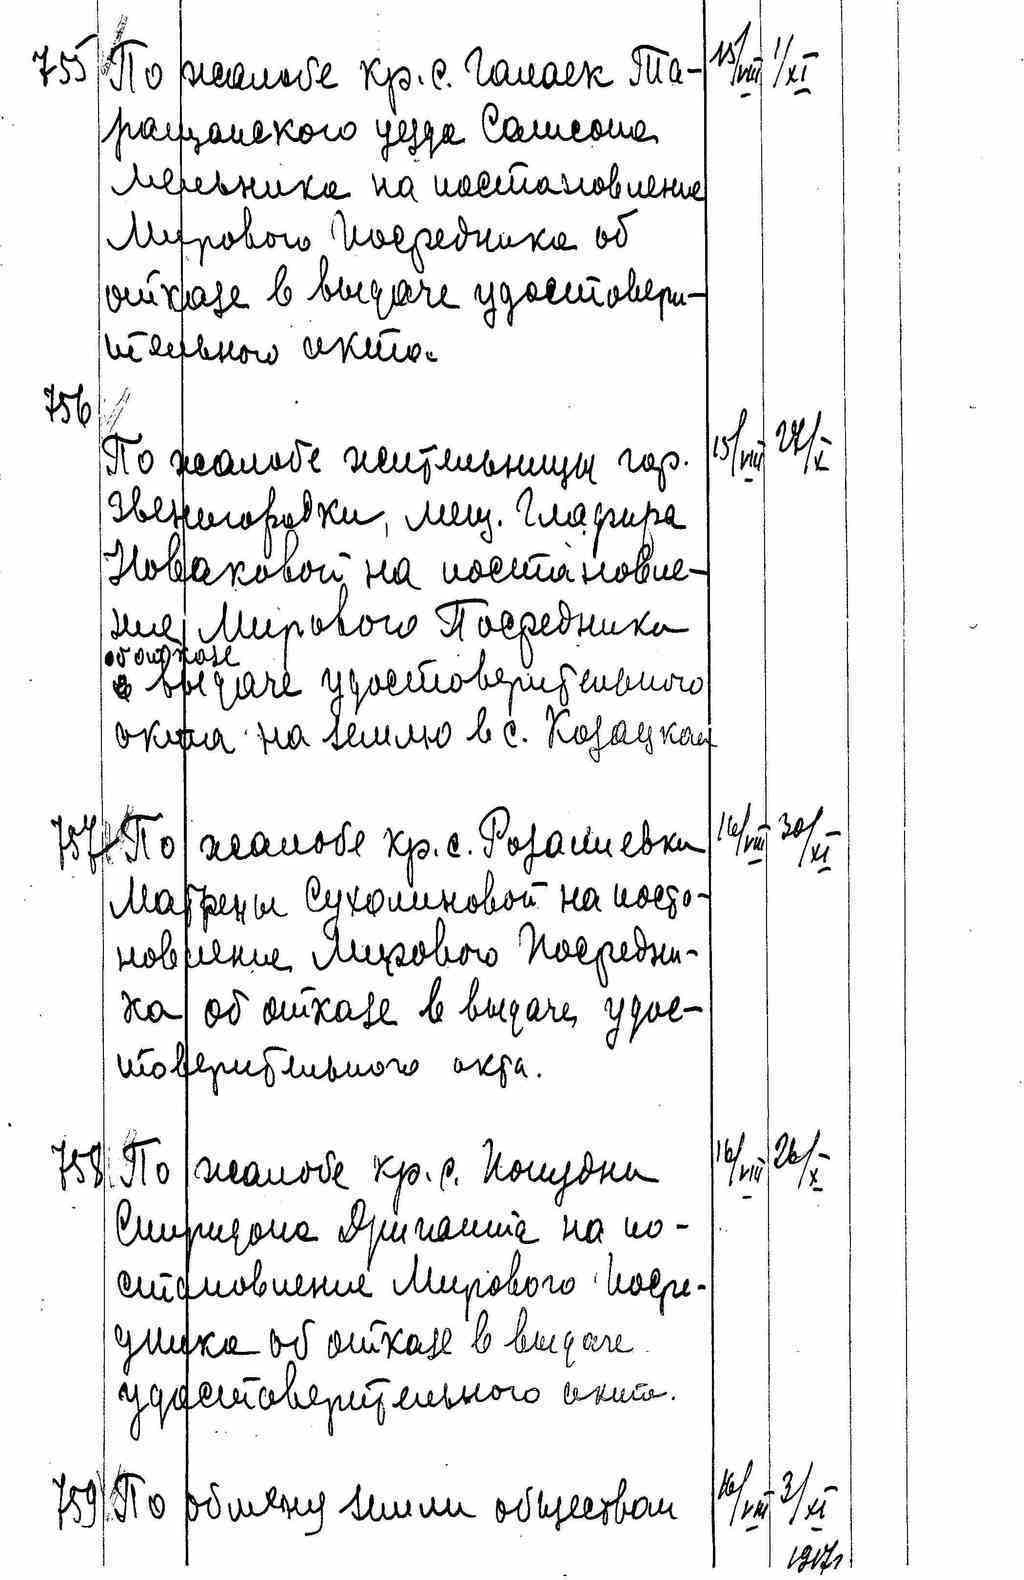 755 По жалобе кр. с. Галаек Та- 15/VIII 1/XI
ращанского уезда Самсона
Мельника на постановление
Мирового Посредника об
отказе в выдаче удостовери-
тельного акта.
756
По жалобе жительницы гор. 15/VIII 27/X
Звенигородки, мещ. Глафира
Новаковой на постановле-
ние Мирового Посредника
об отказе
в выдаче удостоверительного
акта на землю в с. Козацкая
757 По жалобе кр. с. Розалиевки 16/VIII 30/XI
Матрены Сухолиновой на поста-
новление Мирового Посредни-
ка об отказе в выдаче удос-
товерительного акта.
758 По жалобе кр. с. 16/VIII 26/X
Спиридона на по-
становление Мирового Посре-
дника об отказе в выдаче
удостоверительного акта.
759 По обмену земли обществом 16/VIII 3/XI
1917г